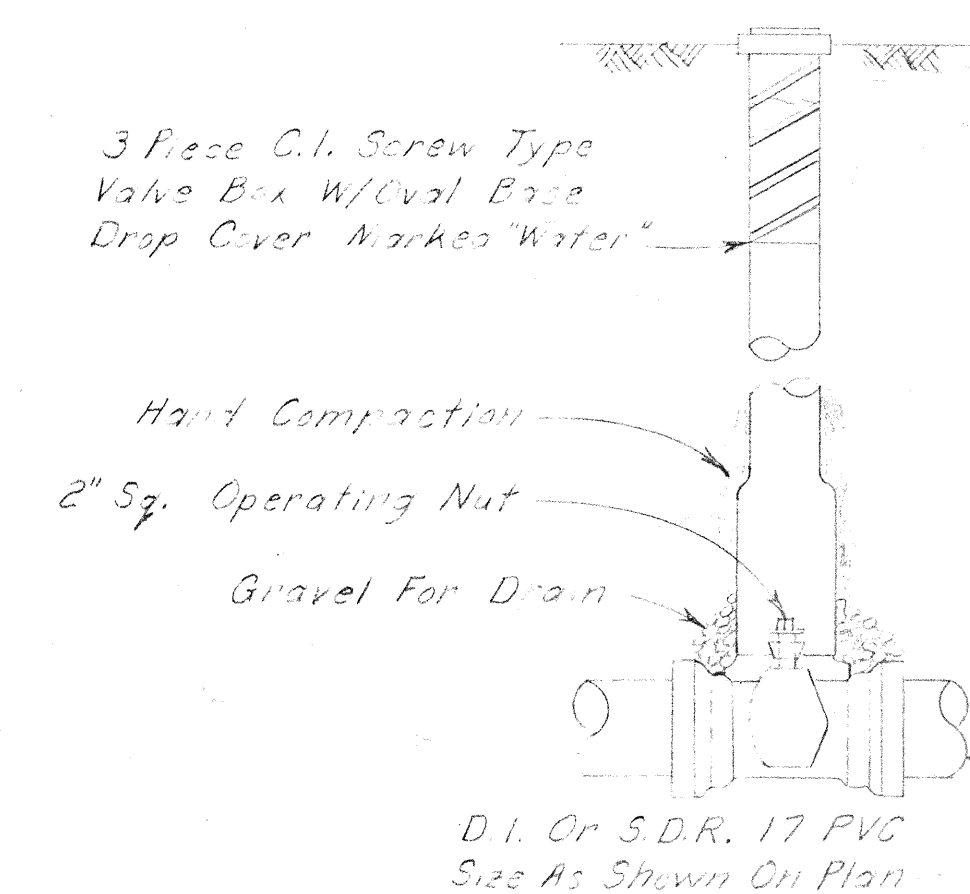 3 Piece C.I. Screw Type
Valve Box W/Oval Base
Drop Cover Marked "Water"
Hand Compaction
2" Sq. Operating Nut
Gravel For Drain
D.I. Or S.D.R. 17 PVC
Size As Shown On Plan